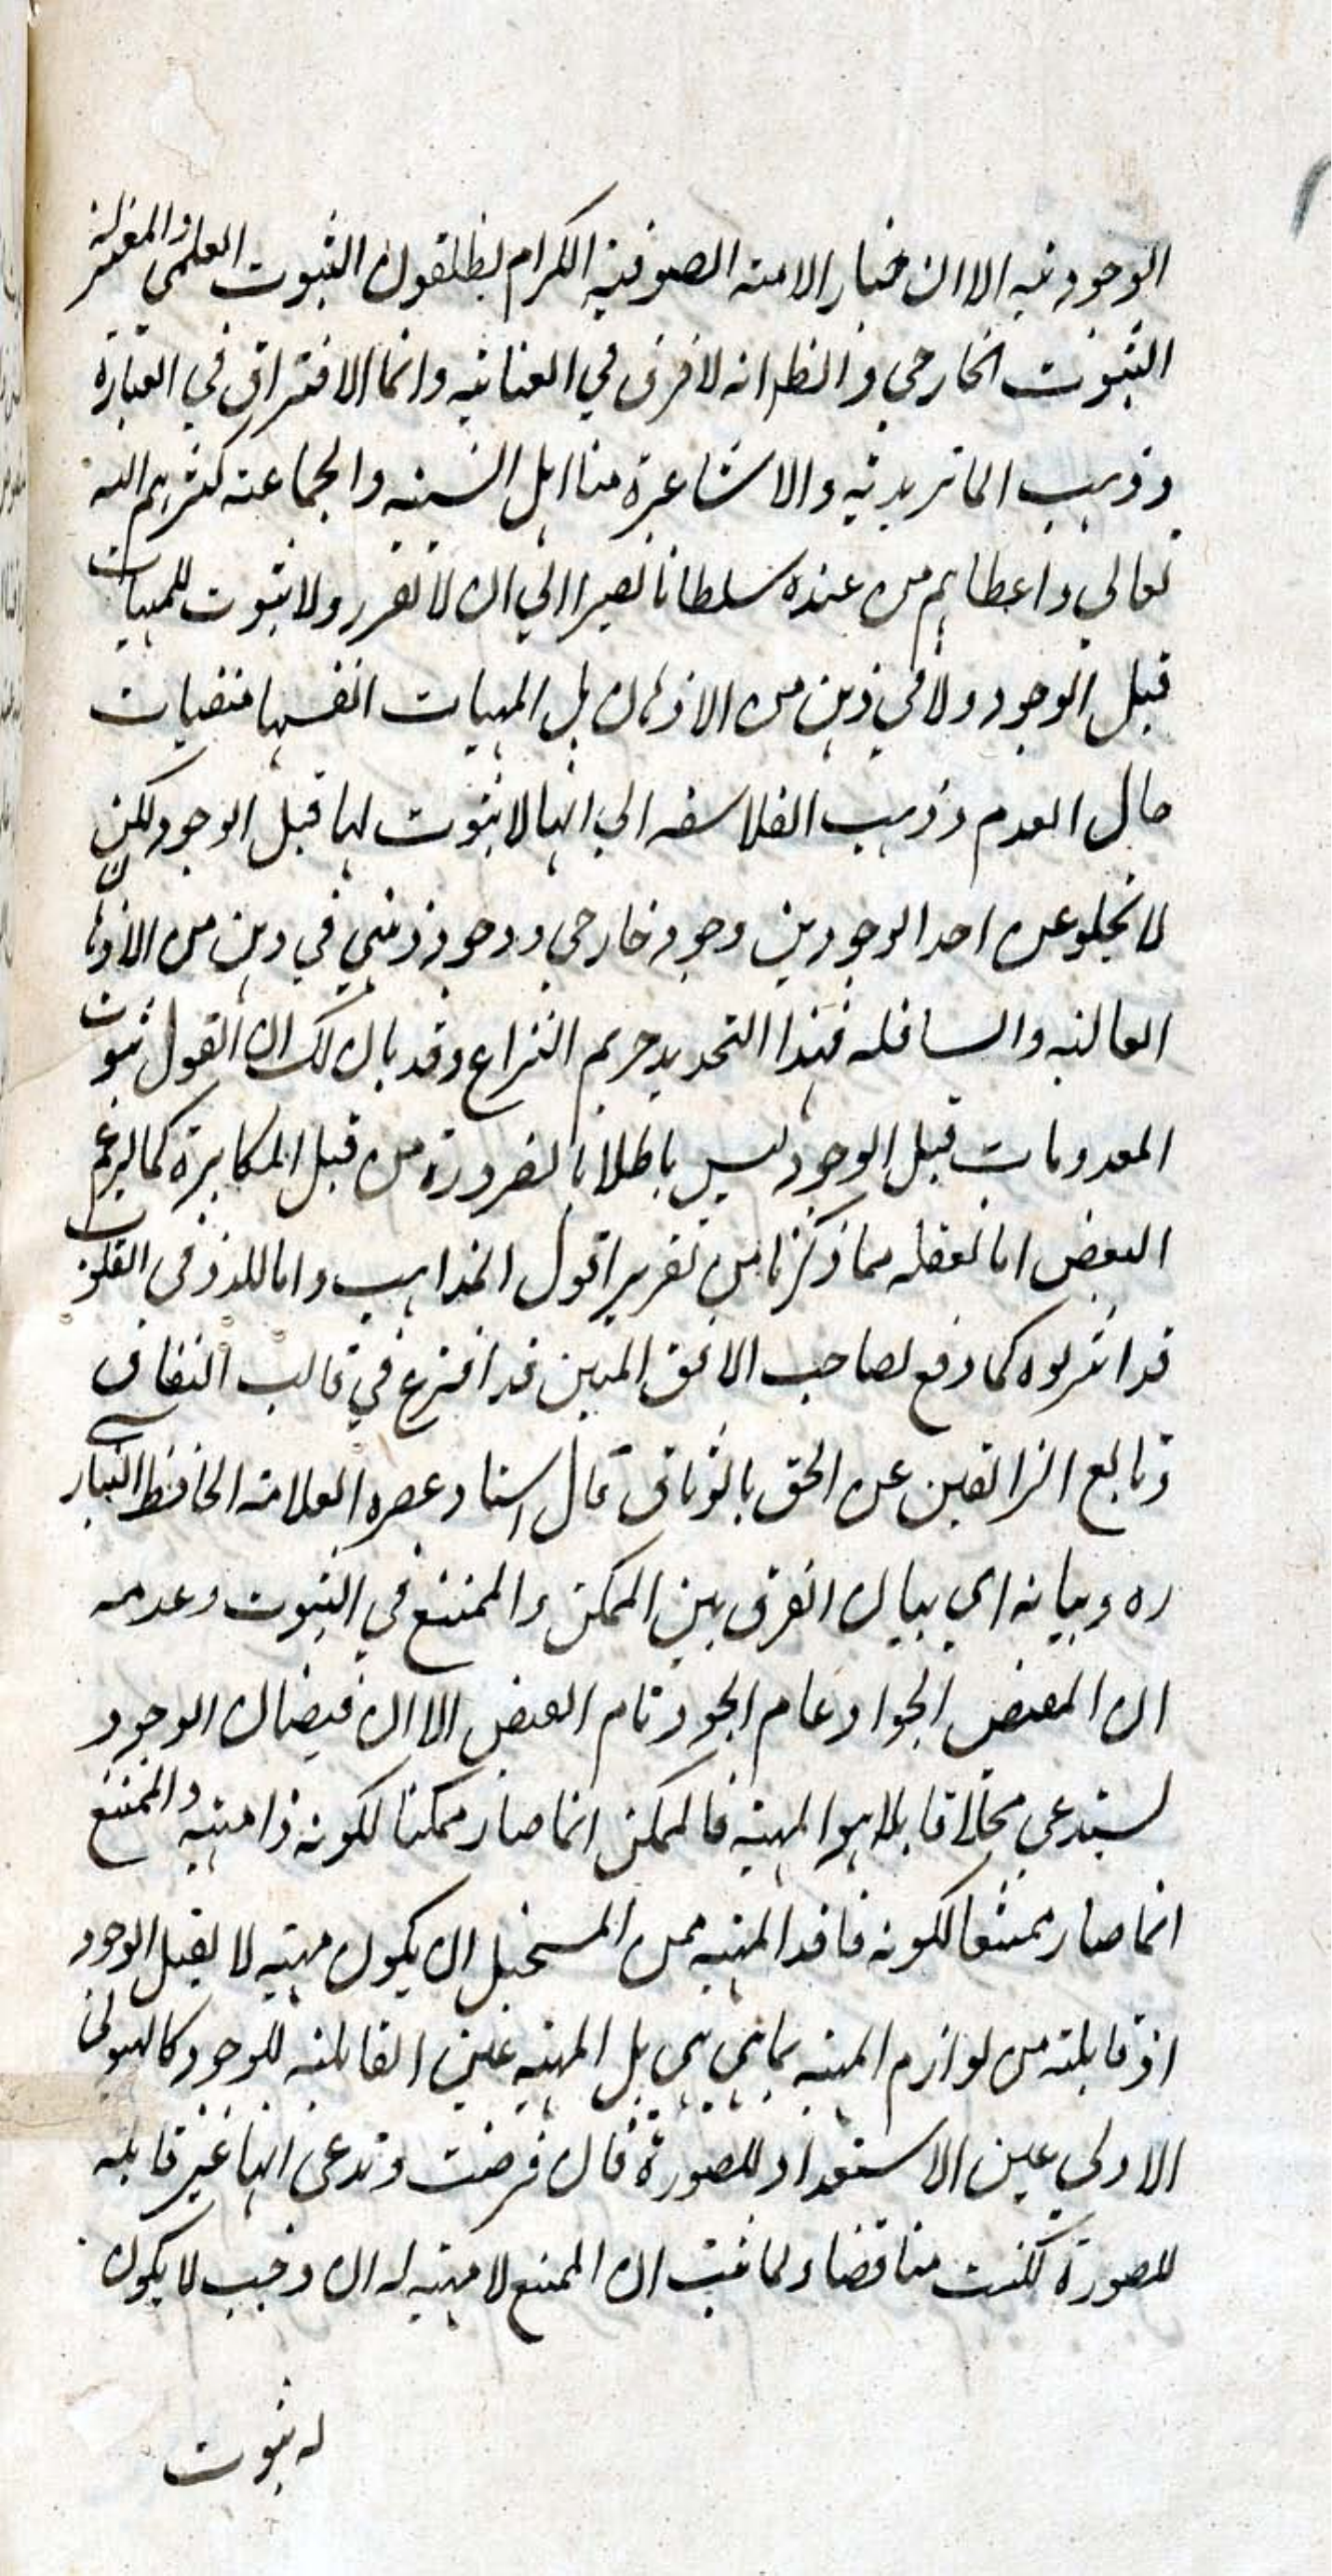 الوجود فيه الا ان خيار الامة الصوفية الكرام يطلقون الثبوت العلمي والمعتزلة
الثبوت الخارجي و انه لا فرق في العناية وانما الافتراق في العبارة
وذهب الماتريدية والاشاعرة منا اهل السنة والجماعة كثرهم الله
تعالي واعطاهم من عنده سلطانا نصيرا الي ان لا تقرر ولا ثبوت للمهيات
قبل الوجود ولا في ذهن من الاذهان بل المهيات انفسها منفيات
حال العدم وذهب الفلاسفه الي انها لا ثبوت لها قبل الوجود لكن
لا يخلو عن احد الوجودين وجود خارجي ووجود ذهني في ذهن من الاذهان
العالية والسافله فهذا التحديد حريم النزاع وقد بان لك ان القول بثبوت
المعدومات قبل الوجود ليس باطلا بالضرورة من قبل المكابرة كما يزعم
البعض اما مما ذكرنا من تقرير اقول المذاهب واما
قد كما وقع لصاحب الافق المبين قد في قالب النفاق
وتابع الزائغين عن الحق بالوثاق قال استاد عصره العلامة الحافظ
ره وبيانه اي بيان الفرق بين الممكن والممتنع في الثبوت وعدمه
ان المفيض الجواد عام الجود تام الفيض الا ان فيضان الوجود
يستدعي محلا قابلا هو المهية فالممكن انما صار ممكنا لكونه ذا مهية والممتنع
انما صار ممتنعا لكونه فاقد المهية فمن المستحيل ان يكون مهية لا يقبل الوجود
اذ قابلية من لوازم المهية بما هي هي بل المهية عين القابلية للوجود كالهيولي
الاولي عين الاستعداد للصورة فان فرضت وتدعي انها غير قابلة
للصورة لكنت مناقضا ولما ثبت ان الممتنع لا مهية له ان وجب لا يكون
له ثبوت